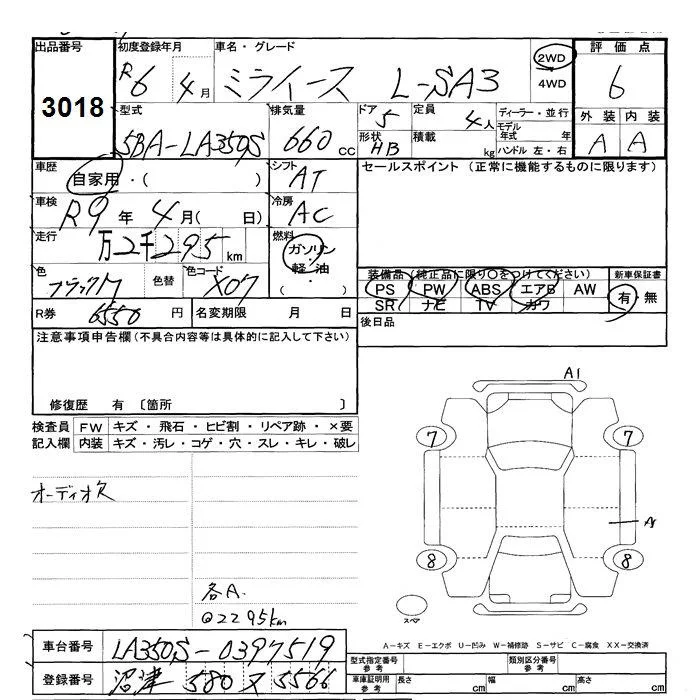 出品番号 初度登録年月 車名・グレード 評価点
3018 R6 4月 ミライース L-SA3 2WD 4WD 6
型式 排気量 ドア 5 定員 4人 ディーラー・並行 外装 内装
5BA-LA350S 660cc 形状 HB 積載 kg モデル年式 年 ハンドル 左・右 A A
車歴 自家用・( ) シフト AT セールスポイント (正常に機能するものに限ります)
車検 R9年 4月( 日) 冷房 AC
走行 万2千295km 燃料 ガソリン・軽油・( )
色 ブラックM 色替 色コード X07
装備品(純正品に限り〇をつけてください) 新車保証書
PS PW ABS エアB AW 有・無
SR ナビ TV カワ
R券 6550円 名変期限 月 日 後日品
注意事項申告欄(不具合内容等は具体的に記入して下さい)
修復歴 有 〔箇所 〕
検査員記入欄 FW キズ・飛石・ヒビ割・リペア跡・×要
内装 キズ・汚レ・コゲ・穴・スレ・キレ・破レ
オーディオ欠
各A.
@2295km
A1
7 7
A
8 8
スペア
A-キズ E-エクボ U-凹み W-補修跡 S-サビ C-腐食 XX-交換済
車台番号 LA350S-0397519
登録番号 沼津 580 5566
型式指定番号 参考 類別区分番号 参考
車庫証明用 参考 長さ cm 幅 cm 高さ cm